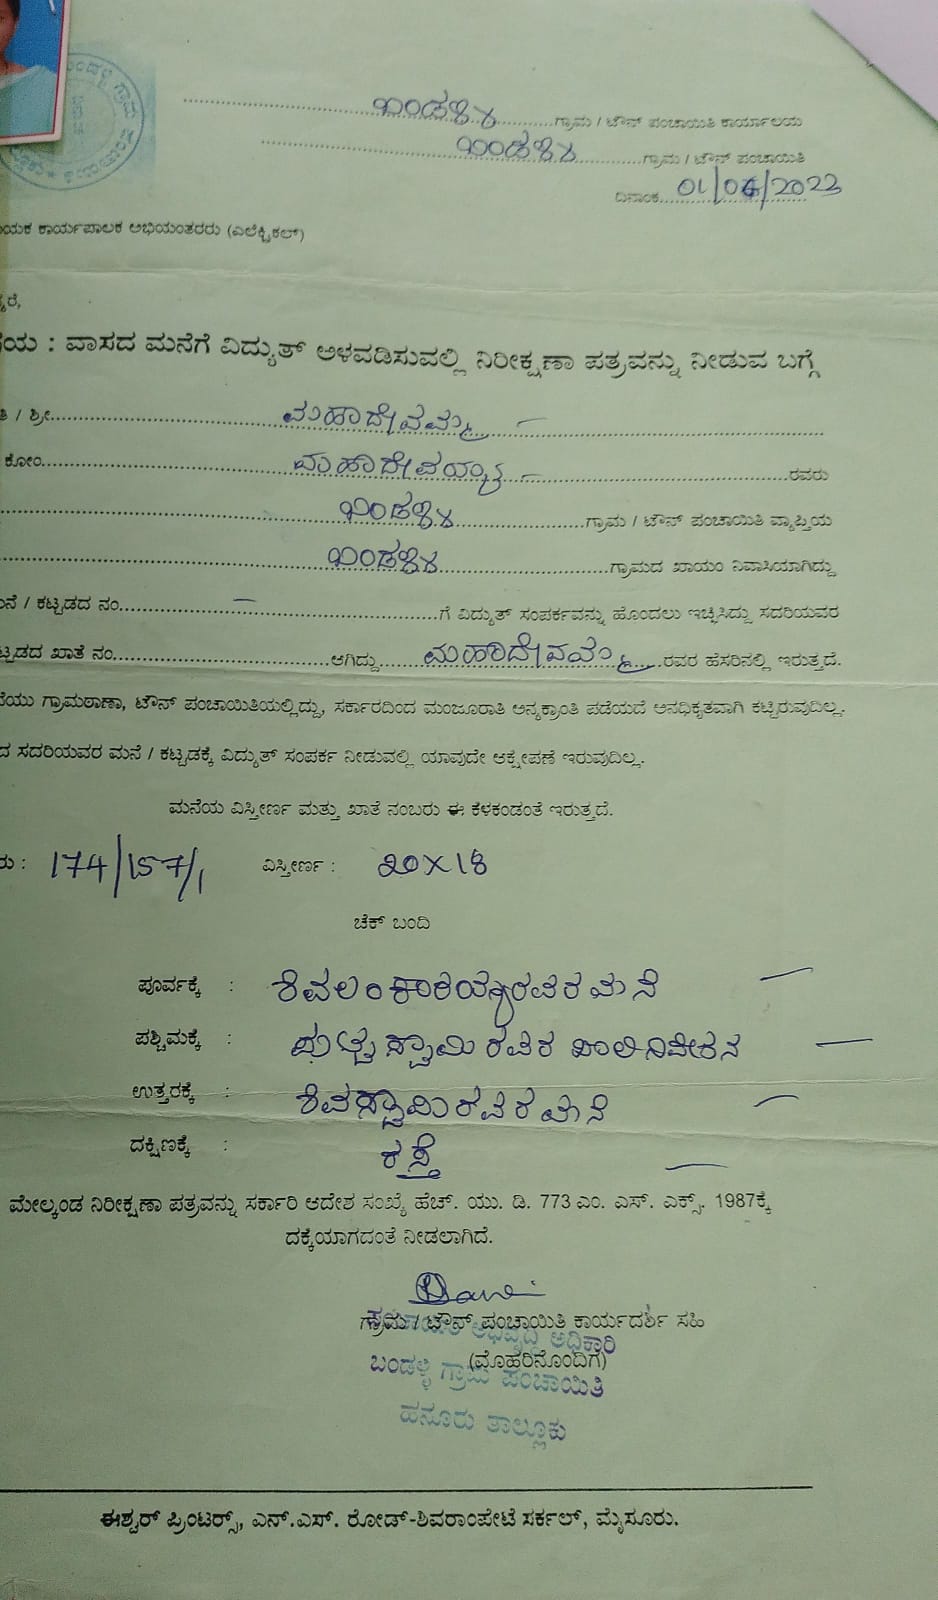 ಬಂಡಳ್ಳಿ ಗ್ರಾಮ / ಟೌನ್ ಪಂಚಾಯಿತಿ ಕಾರ್ಯಾಲಯ
ಬಂಡಳ್ಳಿ ಗ್ರಾಮ / ಟೌನ್ ಪಂಚಾಯಿತಿ
ದಿನಾಂಕ 01/06/2022
ಯಕ ಕಾರ್ಯಪಾಲಕ ಅಭಿಯಂತರರು (ಎಲೆಕ್ಟ್ರಿಕಲ್)
ರೆ,
ಯ : ವಾಸದ ಮನೆಗೆ ವಿದ್ಯುತ್ ಅಳವಡಿಸುವಲ್ಲಿ ನಿರೀಕ್ಷಣಾ ಪತ್ರವನ್ನು ನೀಡುವ ಬಗ್ಗೆ
ತಿ / ಶ್ರೀ ಮಹಾದೇವಮ್ಮ
ಕೋಂ ಮಹಾದೇವಯ್ಯ ರವರು
ಬಂಡಳ್ಳಿ ಗ್ರಾಮ / ಟೌನ್ ಪಂಚಾಯಿತಿ ವ್ಯಾಪ್ತಿಯ
ಬಂಡಳ್ಳಿ ಗ್ರಾಮದ ಖಾಯಂ ನಿವಾಸಿಯಾಗಿದ್ದು
ನೆ / ಕಟ್ಟಡದ ನಂ. — ಗೆ ವಿದ್ಯುತ್ ಸಂಪರ್ಕವನ್ನು ಹೊಂದಲು ಇಚ್ಛಿಸಿದ್ದು ಸದರಿಯವರ
ಟ್ಟಡದ ಖಾತೆ ನಂ. ಆಗಿದ್ದು ಮಹಾದೇವಮ್ಮ ರವರ ಹೆಸರಿನಲ್ಲಿ ಇರುತ್ತದೆ.
ಯು ಗ್ರಾಮಠಾಣಾ, ಟೌನ್ ಪಂಚಾಯಿತಿಯಲ್ಲಿದ್ದು, ಸರ್ಕಾರದಿಂದ ಮಂಜೂರಾತಿ ಅನ್ಯಕ್ರಾಂತಿ ಪಡೆಯದೆ ಅನಧಿಕೃತವಾಗಿ ಕಟ್ಟಿರುವುದಿಲ್ಲ.
ದ ಸದರಿಯವರ ಮನೆ / ಕಟ್ಟಡಕ್ಕೆ ವಿದ್ಯುತ್ ಸಂಪರ್ಕ ನೀಡುವಲ್ಲಿ ಯಾವುದೇ ಆಕ್ಷೇಪಣೆ ಇರುವುದಿಲ್ಲ.
ಮನೆಯ ವಿಸ್ತೀರ್ಣ ಮತ್ತು ಖಾತೆ ನಂಬರು ಈ ಕೆಳಕಂಡಂತೆ ಇರುತ್ತದೆ.
ರು : 174/157/1 ವಿಸ್ತೀರ್ಣ : 20X18
ಚೆಕ್ ಬಂದಿ
ಪೂರ್ವಕ್ಕೆ : ರವರ ಮನೆ
ಪಶ್ಚಿಮಕ್ಕೆ : ಪುಟ್ಟಸ್ವಾಮಿ ರವರ ಖಾಲಿ ನಿವೇಶನ
ಉತ್ತರಕ್ಕೆ : ಶಿವಸ್ವಾಮಿ ರವರ ಮನೆ
ದಕ್ಷಿಣಕ್ಕೆ : ರಸ್ತೆ
ಮೇಲ್ಕಂಡ ನಿರೀಕ್ಷಣಾ ಪತ್ರವನ್ನು ಸರ್ಕಾರಿ ಆದೇಶ ಸಂಖ್ಯೆ ಹೆಚ್. ಯು. ಡಿ. 773 ಎಂ. ಎಸ್. ಎಕ್ಸ್. 1987ಕ್ಕೆ
ದಕ್ಕೆಯಾಗದಂತೆ ನೀಡಲಾಗಿದೆ.
ಗ್ರಾಮ / ಟೌನ್ ಪಂಚಾಯಿತಿ ಕಾರ್ಯದರ್ಶಿ ಸಹಿ
ಅಭಿವೃದ್ಧಿ ಅಧಿಕಾರಿ
(ಮೊಹರಿನೊಂದಿಗೆ)
ಬಂಡಳ್ಳಿ ಗ್ರಾಮ ಪಂಚಾಯಿತಿ
ಹನೂರು ತಾಲ್ಲೂಕು
ಈಶ್ವರ್ ಪ್ರಿಂಟರ್ಸ್, ಎನ್.ಎಸ್. ರೋಡ್-ಶಿವರಾಂಪೇಟೆ ಸರ್ಕಲ್, ಮೈಸೂರು.